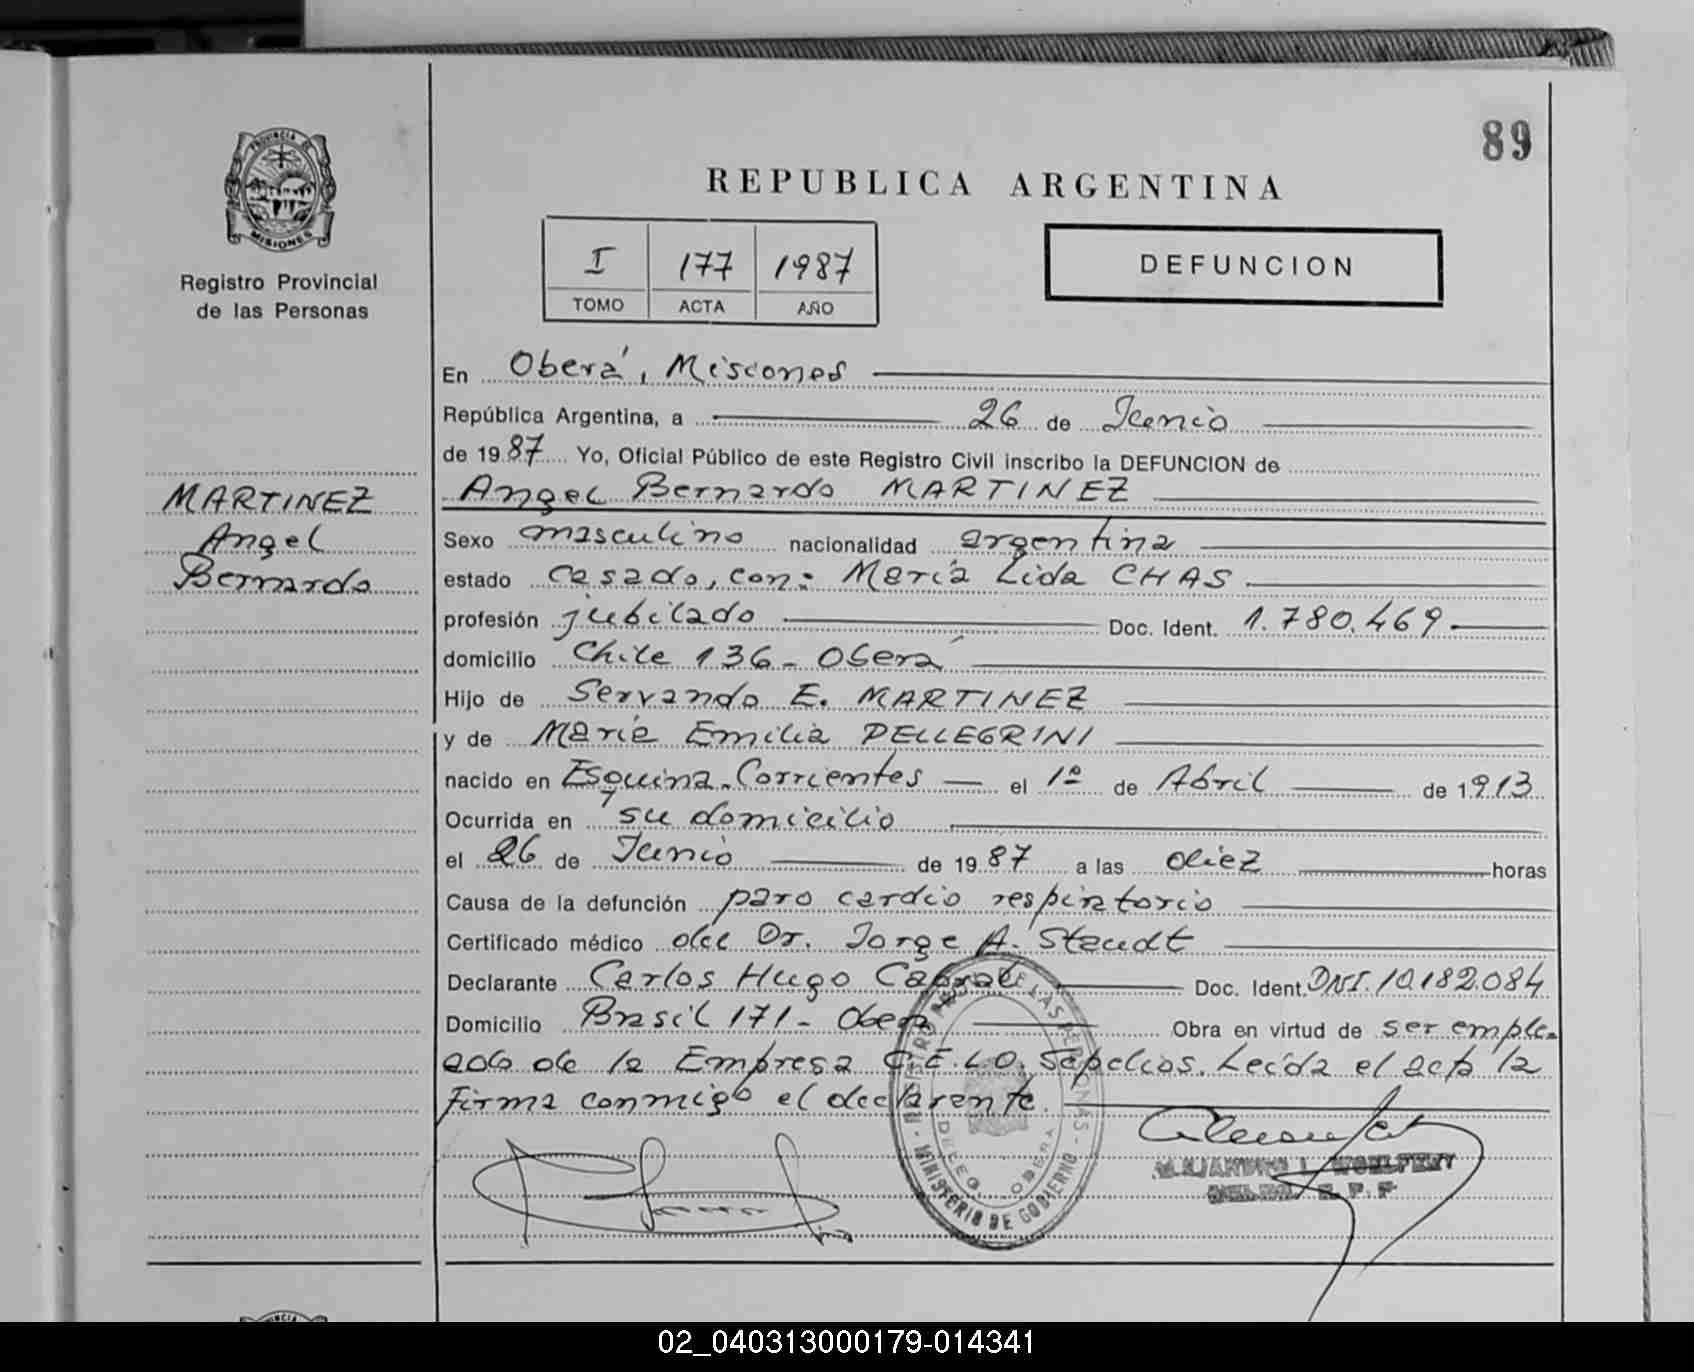 89
PROVINCIA DE
MISIONES
Registro Provincial
de las Personas
REPUBLICA ARGENTINA
I 177 1987
TOMO ACTA AÑO
DEFUNCION
MARTINEZ
Angel
Bernardo
En Oberá, Misiones
República Argentina, a 26 de Junio
de 1987 Yo, Oficial Público de este Registro Civil inscribo la DEFUNCION de
Angel Bernardo MARTINEZ
Sexo masculino nacionalidad argentina
estado casado, con: María Lida CHAS
profesión jubilado Doc. Ident. 1.780.469
domicilio Chile 136 - Oberá
Hijo de Servando E. MARTINEZ
y de María Emilia PELLEGRINI
nacido en Esquina - Corrientes el 1º de Abril de 1913
Ocurrida en su domicilio
el 26 de Junio de 1987 a las diez horas
Causa de la defunción paro cardio respiratorio
Certificado médico del Dr. Jorge A. Staudt
Declarante Carlos Hugo Cabral Doc. Ident. DNI. 10.182.084
Domicilio Brasil 171 - Oberá Obra en virtud de ser emple-
ado de la Empresa C.E.L.O. Sepelios. Leída el acta la
firma conmigo el declarante.
REGISTRO DE LAS PERSONAS
OBERA
MINISTERIO DE GOBIERNO
02_040313000179-014341